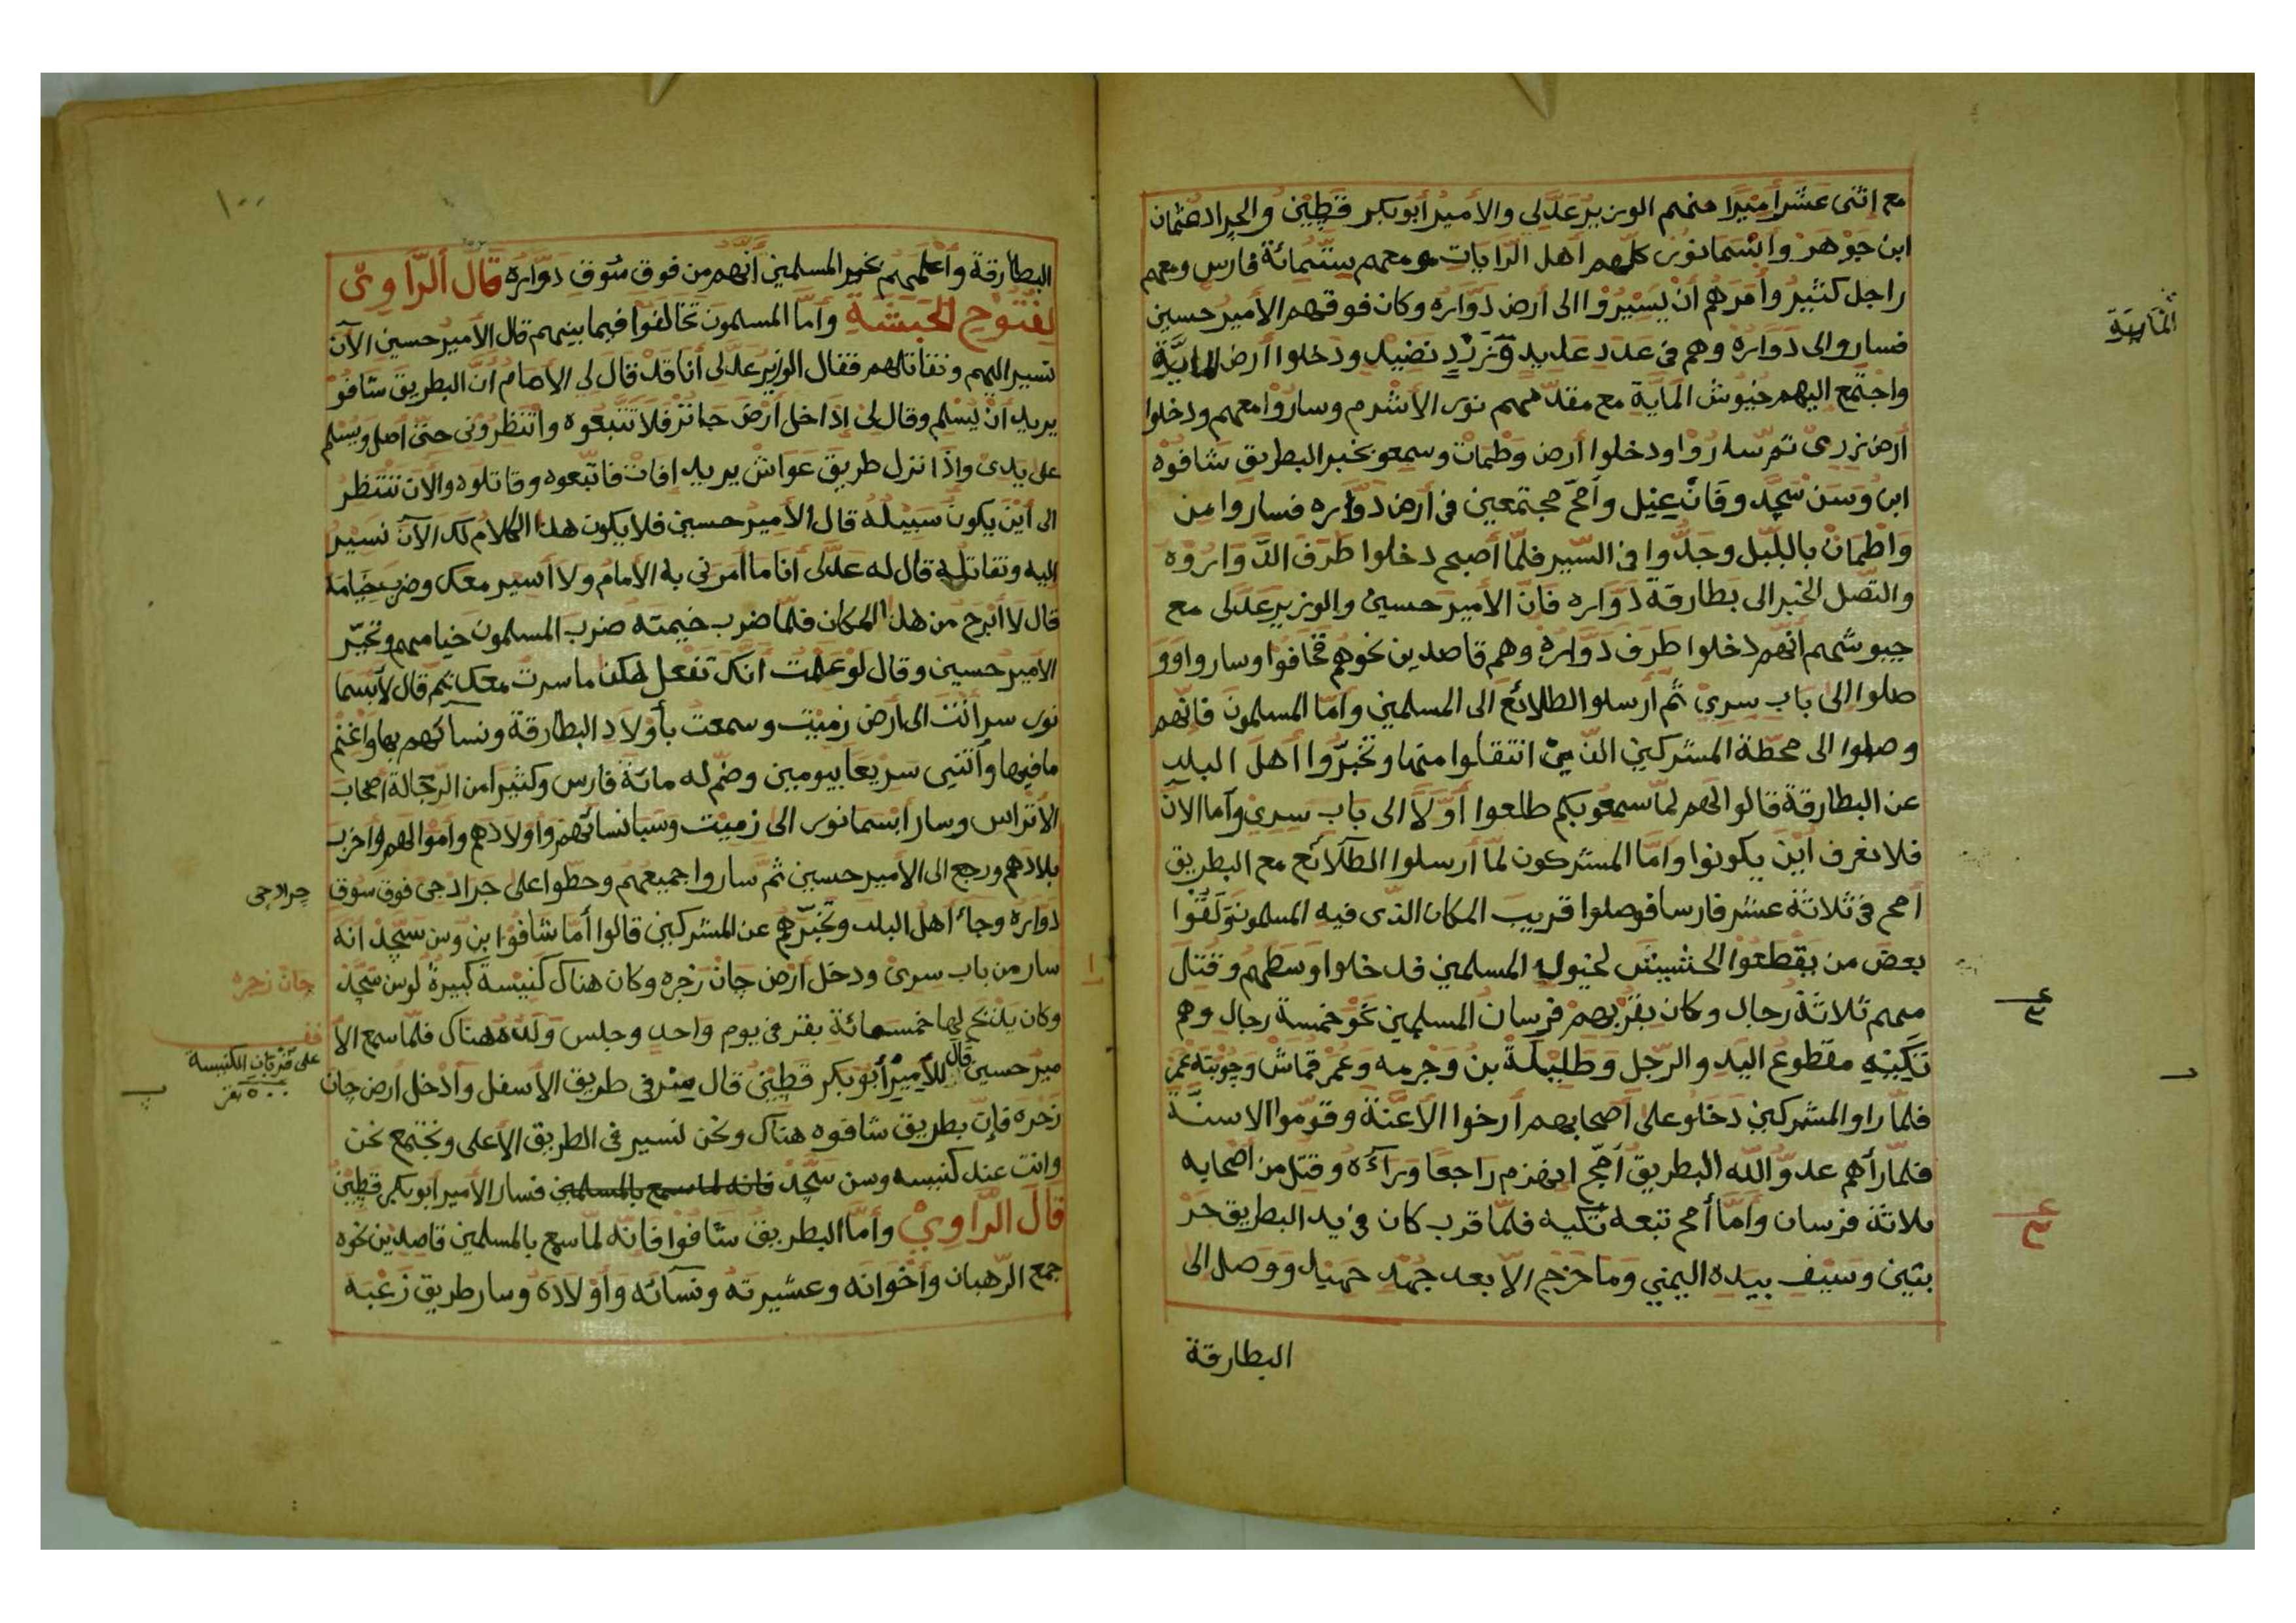 مع إثنى عشر أميرا منهم الوزير عدلى والأمير أبو بكر قطين والجراد عثمان
ابن جوهر وابسمانور كلهم أهل الرايات ومعهم ستمائة فارس ومعهم
راجل كثير وأمرهم أن يسيروا الى أرض دواره وكان فوقهم الأمير حسين
فساروا الى دواره وهم في عدد عديد وزرد نضيد ودخلوا أرض الماية
واجتمع اليهم جيوش الماية مع مقدمهم نور الأشرم وساروا معهم ودخلوا
أرض زرى ثم ساروا ودخلوا أرض وطمات وسمعو بخبر البطريق شافوه
ابن وسن سجد وفانعيل وأمح مجتمعين في أرض دواره فساروا من
واطمات بالليل وجدوا في السير فلما أصبح دخلوا طرف الدواروه
والتصل الخبر الى بطارقة دواره فان الأمير حسين والوزير عدلى مع
جيوشهم أنهم دخلوا طرف دواره وهم قاصدين نحوهم فخافوا وساروا وو
صلوا إلى باب سرى ثم أرسلو الطلائع الى المسلمين وأما المسلمون فانهم
وصلوا الى محطة المشركين الذين انتقلوا منها وتخبروا أهل البلد
عن البطارقة قالوا لهم لما سمعو بكم طلعوا أولا الى باب سرى وأما الان
فلا نعرف أين يكونوا وأما المشركون لما أرسلوا الطلائع مع البطريق
أمح في ثلاثة عشر فارسا فوصلوا قريب المكان الذى فيه المسلمون ولقوا
بعض من يقطعوا الحشيش لخيول المسلمين فدخلوا وسطهم وقتل
منهم ثلاثة رجال وكان بقربهم فرسان المسلمين نحو خمسة رجال وهم
تكيه مقطوع اليد والرجل وطلبكة بن وجرمه وعمر قماش وجوبته عمر
فلما راو المشركين دخلو على أصحابهم أرخوا الأعنة وقوموا الاسنة
فلما رأهم عدو الله البطريق أمح انهزم راجعا وراءه وقتل من أصحابه
ثلاثة فرسان وأما أمح تبعه تكيه فلما قرب كان في يد البطريق حر
بتين وسيف بيده اليمني وما خرج الا بعد جهد جهيد ووصل الى
البطارقة
الماية
١٠٠
البطارقة وأعلمهم بخبر المسلمين أنهم من فوق سوق دواره قال الراوى
لفتوح الحبشة وأما المسلمون تخالفوا فيما بينهم قال الأمير حسين الآن
نسير اليهم ونقاتلهم فقال الوزير عدلى أنا قد قال لى الأمام أن البطريق شافو
يريد أن يسلم وقال لى إذا خل أرض جانز فلا تتبعوه وانتظرونى حتى أصل ويسلم
على يدى واذا نزل طريق عواش يريد افات فاتبعوه وقاتلوه والان ننتظر
الى أين يكون سبيله قال الأمير حسين فلا يكون هذا الكلام لك الآن نسير
اليه ونقاتله قال له عدلى أنا ما أمرني به الأمام ولا أسير معك وضرب خيامه
قال لا أبرح من هذا المكان فلما ضرب خيمته ضرب المسلمون خيامهم وتحير
الأمير حسين وقال لو علمت أنك تفعل هكذا ما سرت معك ثم قال لأبسما
نور سر أنت الى أرض زميت وسمعت بأولاد البطارقة ونسائهم بها واغنم
ما فيها وآتني سريعا بيومين وضم له مائة فارس وكثيرا من الرجالة أصحاب
الأتراس وسار أبسمانور الى زميت وسبا نسائهم وأولادهم وأموالهم وأخرب
بلادهم ورجع الى الأمير حسين ثم ساروا جميعهم وحطوا على جرادجى فوق سوق
دواره وجاء أهل البلد وتخبرهم عن المشركين قالوا أما شافوا بن وسن سجد أنه
سار من باب سرى ودخل أرض جان زجره وكان هناك كنيسة كبيرة لوسن سجد
وكان يذبح لها خمسمائة بقر في يوم واحد وجلس ولده هناك فلما سمع الأ
مير حسين قال للأمير أبو بكر قطين قال سر في طريق الأسفل وأدخل أرض جان
زجره فإن بطريق شافوه هناك ونحن نسير في الطريق الأعلى ونجتمع نحن
وانت عند كنيسه وسن سجد فانه لما سمع بالمسلمين فسار الأمير أبو بكر قطين
قال الراوي وأما البطريق شافوا فانه لما سمع بالمسلمين قاصدين نحوه
جمع الرهبان وأخوانه وعشيرته ونسائه وأولاده وسار طريق زغبه
جرادجى
جان زجره
قف
على قربان الكنيسة
٥٠٠ بقر